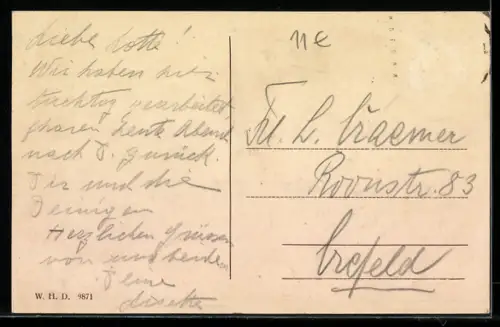 Liebe Lotte!
Wir haben hier
tüchtig gearbeitet,
fahren heute Abend
nach D. zurück.
Dir und die
Deinigen
Herzlichen Grüssen
von uns beiden
Deine
Lisette
W. H. D. 9871
11€
Frl. L. Craemer
Roonstr. 83
Crefeld